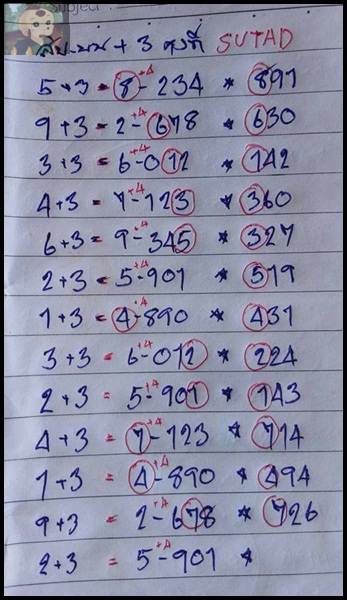 Subject
สิบ-บน + 3 คงที่ SUTAD
5+3 = 8-+4 234 * 891
9+3 = 2-+4 678 * 630
3+3 = 6-+4 012 * 142
4+3 = 7-+4 123 * 360
6+3 = 9-+4 345 * 327
2+3 = 5-+4 901 * 519
1+3 = 4-+4 890 * 431
3+3 = 6-+4 012 * 224
2+3 = 5-+4 901 * 143
4+3 = 7-+4 123 * 714
1+3 = 4-+4 890 * 494
9+3 = 2-+4 678 * 726
2+3 = 5-+4 901 *